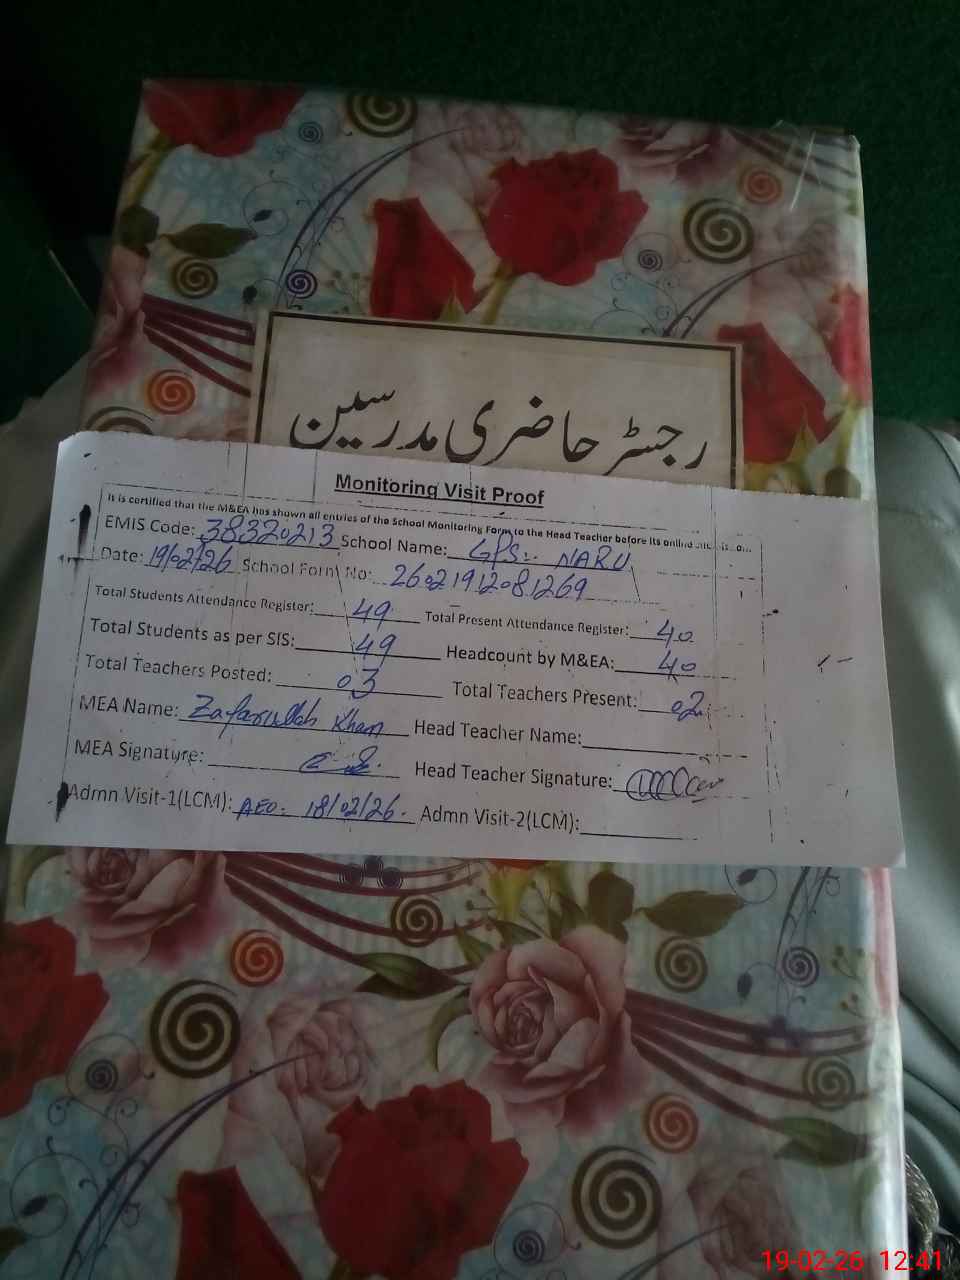 رجسٹر حاضری مدرسین
Monitoring Visit Proof
It is certified that the M&EA has shown all entries of the School Monitoring Form to the Head Teacher before its online
EMIS Code: 38320213 School Name: GPS:. NARU
Date: 19/02/26 School Form No: 26021912081269
Total Students Attendance Register: 49 Total Present Attendance Register: 40
Total Students as per SIS: 49 Headcount by M&EA: 40
Total Teachers Posted: 03 Total Teachers Present: 02
MEA Name: Zafarullah Khan Head Teacher Name:
MEA Signature: Head Teacher Signature:
Admn Visit-1(LCM): AEO:. 18/02/26. Admn Visit-2(LCM):
19-02-26 12:41